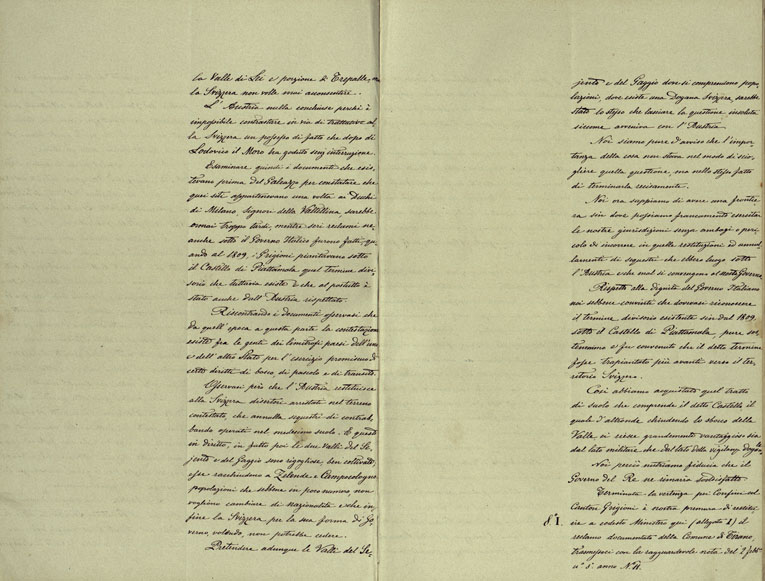 la Valle di Lei e porzione di Trepalle, ma
la Svizzera non volle mai acconsentire.
L'Austria nulla conchiuse perchè è
impossibile contrastare in via di trattative al
la Svizzera un possesso di fatto che dopo di
Lodovico il Moro ha goduto senz'interruzione.
Esaminare quindi i documenti che esis
tevano prima del Galeazzo per constatare che
quei siti appartenevano una volta ai Duchi
di Milano, Signori della Valtellina sarebbe
oramai troppo tardi, mentre seri reclami ne
anche sotto il Governo Italico furono fatti, qu
ando al 1809 i Grigioni piantavano sotto
il Castello di Piattamala quel termine divi
sorio che tuttavia esiste e che al postutto è
stato anche dall'Austria rispettato.
Riscontrando i documenti osservasi che
da quell'epoca a questa parte la contestazione
esiste fra le genti dei limitrofi paesi dell'uno
e dell'altro Stato per l'esercizio promiscuo di
certi diritti di bosco, di pascolo e di transito.
Osservasi però che l'Austria restituisce
alla Svizzera disertori arrestati nel terreno
contestato, che annulla sequestri di contrab
bando operati nel medesimo suolo. E questo
in diritto, in fatto poi le due Valli del Sa
jento e del Gaggio sono rigogliose, ben coltivate,
esse racchiudono a Zelende e Campocologno
popolazioni che sebbene in poco numero non
vogliono cambiare di nazionalità e che in
fine la Svizzera per la sua forma di Go
verno, volendo, non potrebbe cedere.
Pretendere adunque le Valli del Sa=
jento e del Gaggio dove si comprendono popo
lazioni, dove esiste una Dogana Svizzera, sarebbe
stato lo stesso che lasciare la questione insoluta
siccome avveniva con l'Austria.
Noi siamo pure d'avviso che l'impor
tanza della cosa non stava nel modo di scio
gliere quella questione, ma nello stesso fatto
di terminarla recisamente.
Noi ora sappiamo di avere una frontie
ra sin dove possiamo francamente esercitar
le nostre giurisdizioni senza ambagi e peri
colo di incorrere in quelle restituzioni ed annul
lamenti di sequestri che ebbero luogo sotto
l'Austria e che mal si convengono al nostro Governo.
Rispetto alla dignità del Governo Italiano
noi sebbene convinti che dovevasi riconoscere
il termine divisorio esistente sin dal 1809
sotto il Castello di Piattamala pure sos
tenemmo e fu convenuto che il detto termine
fosse trapiantato più avanti verso il ter
ritorio Svizzero.
Così abbiamo acquistato quel tratto
di suolo che comprende il detto Castello il
quale d'altronde chiudendo lo sbocco della
Valle ci riesce grandemente vantaggioso sia
dal lato militare che dal lato della vigilanza doganale.
Noi perciò nutriamo fiducia che il
Governo del Re ne rimarrà soddisfatto.
Terminata la vertenza pei Confini col
Cantone Grigioni è nostra premura di restitu
ire a codesto Ministero qui (allegato 1) il
§ 1.
reclamo documentato della Comune di Tirano,
trasmessoci con la ragguardevole nota del 2 febb°
n° 5. anno